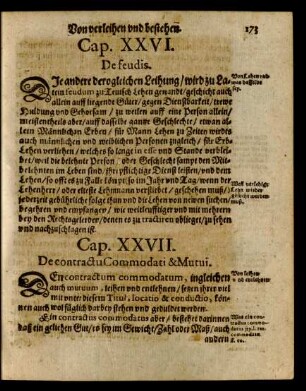 Von verleihen vnd bestehen.
173
Cap. XXVI.
De feudis.
DIe andere derogleichen Leihung / wird zu La-
tein feudum zu Teusch Lehen genandt / geschicht auch
allein auff ligende Güter / gegen Dienstbarkeit / trewe
Huldung und Gehorsam / zu zeiten auff eine Person allein /
meistentheils aber / auff dasselbe gantze Geschlechte / etwan al-
lein Männlichen Erben / für Mann Lehen zu Zeiten wirdts
auch männlichen vnd weiblichen Personen zugleich / für Erb
Lehen verliehen / welches so lang in esse vnd Stande verblei-
bet / weil die belehnte Person / oder Geschlecht sampt den Mit-
belehnten im Leben sind / ihre pflichtige Dienst leisten / vnd den
Lehen / so offt es zu Falle kömpt so im Jahr vnd Tag / wenn der
Lehenherr / oder elteste Lehenmann verstirbet / geschehen muß /
jederzeit gebührliche folge thun vnd die Lehen von newen suchen
begehren vnd empfangen / wie weitleufftiger vnd mit mehrern
bey den Rechtsgelerder / denen es zu tractiren obliget / zu sehen
vnd nachzuschlagen ist.
Von Lehen
sey.
Weß
Lehn wieder
gesucht werden
muß.
Cap. XXVII.
De contractu Commodati & Mutui.
DEn contractum commodatum, ingleichen
auch mutuum, leihen vnd entlehnen / seynn ihrer viel
mit vnter diesem Titul, locatio & conductio, kön-
nen auch was füglich darbey stehen vnd geduldet werden.
Ein contractus commodatus aber / bestehet darinnen
daß ein gelichen Gut / es sey im Gewicht / Zahl oder Maß / auch
andern
Von leihen
vnd entlehnen
Was ein con-
tractus commo-
datus sey.